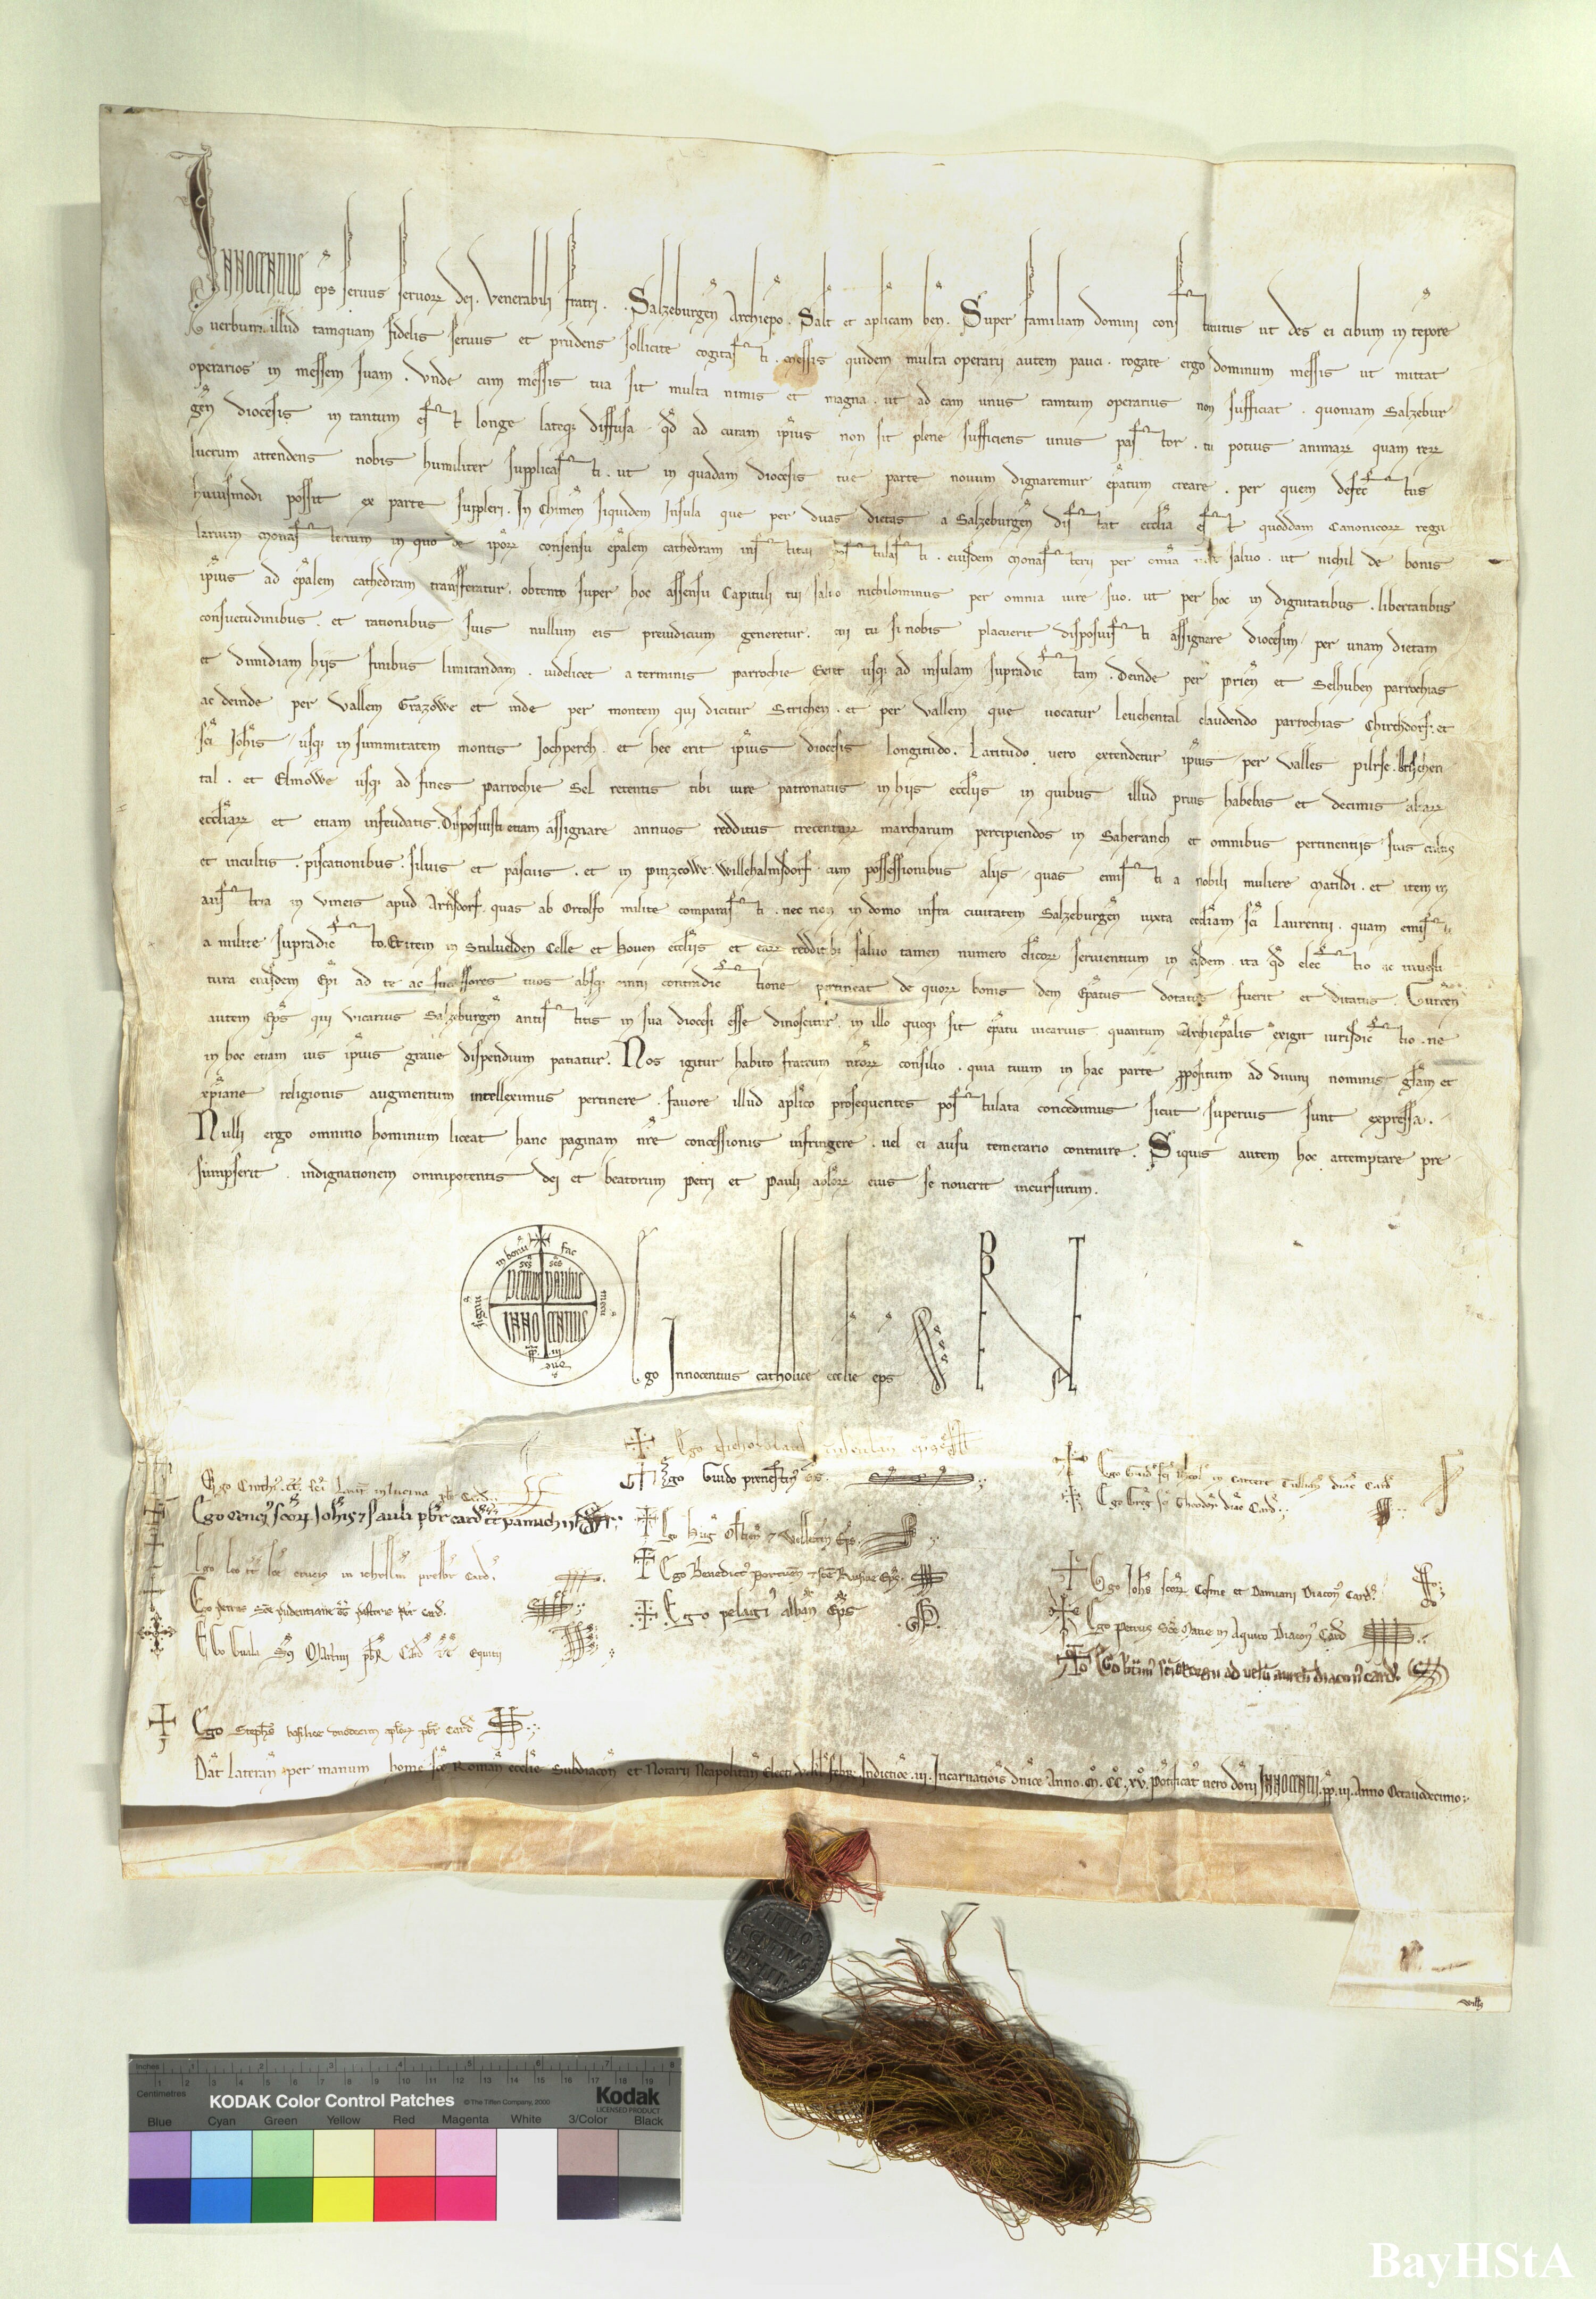 INNOCENTIUS eps seruus seruorꝝ dei. Venerabili fratri .. Salzeburgen̄ Archiepo. Salt et aplicam ben. Super familiam domini constitutus ut des ei cibum in tēpore
uerbum illud tamquam fidelis seruus et prudens sollicite cogitasti. messis quidem multa operarii autem pauci. rogate ergo dominum messis ut mittat
operarios in messem suam. Vnde cum messis tua sit multa nimis et magna. ut ad eam unus tantum operarius non sufficiat. quoniam Salzebur
gen̄ diocesis in tantum est longe lateq; diffusa. qd ad curam ipius non sit plene sufficiens unus pastor. tu potius animarꝝ quam rerꝝ
lucrum attendens nobis humiliter supplicasti. ut in quadam diocesis tue parte nouum dignaremur epatum creare. per quem defectus
huiusmodi possit ex parte suppleri. In Chimen̄ siquidem Insula que per duas dietas a Salzeburgen̄ distat ecclia est quoddam Canonicorꝝ regu
larium monasterium in quo de iporꝝ consensu epalem cathedram institui postulasti. eiusdem monasterii per omia iure saluo. ut nichil de bonis
ipius ad epalem cathedram transferatur. obtento super hoc assensu Capituli tui saluo nichilominus per omnia iure suo. ut per hoc in dignitatibus. libertatibus
consuetudinibus. et rationibus suis nullum eis preiudicium generetur. cui tu si nobis placuerit disposuisti assignare diocesim per unam dietam
et dimidiam hiis finibus limitandam. uidelicet a terminis parrochie Seiet usq; ad insulam supradictam. Deinde per prien̄ et Selhuben parrochias
ac deinde per Vallem Grazowe et inde per montem qui dicitur Strichen. et per vallem que uocatur Leuchental claudendo parrochias Chirchdorf. et
sci Johis usq; in summitatem montis Jochperch. et hec erit ipius diocesis longitudo. Latitudo uero extendetur ipius per valles pilrse.
tal. et Elmowe usq; ad fines parrochie Sel retentis tibi iure patronatus in hiis eccliis in quibus illud prius habebas et decimis aliarꝝ
eccliarꝝ et etiam infeudatis. Disposuisti etiam assignare annuos redditus trecentarꝝ marcharum percipiendos in Saheranch et omnibus pertinentiis suis cultis
et incultis. piscationibus. siluis et pascuis. et in pinzcowe. Willehalmsdorf. cum possessionibus aliis. quas emisti a nobili muliere Matildi. et item in
austria in vineis apud Arnsdorf. quas ab Ortolfo milite comparasti. nec non in domo infra ciuitatem Salzeburgen̄ iuxta eccliam sci Laurentii. quam emisti
a milite supradicto. Et item in Stuluelden Celle et Houen eccliis et earꝝ redditib; saluo tamen numero clicorꝝ seruientium in eisdem. ita qd electio ac inuesti
tura eiusdem Epi ad te ac successores tuos absq; omni contradictione pertineat de quorꝝ bonis idem Epatus dotatus fuerit et ditatus. Gurcen̄
autem Eps qui vicarius Salzeburgen̄ antistitis in sua diocesi esse dinoscitur. in illo quoq; sit epatu uicarius quantum Archiepalis exigit iurisdictio. ne
in hoc etiam ius ipius graue dispendium patiatur. Nos igitur habito fratrum nrorꝝ consilio. quia tuum in hac parte ppositum ad diuini nominis glam et
xpiane religionis augmentum intelleximus pertinere. fauore illud aplico prosequentes postulata concedimus sicut superius sunt expressa.
Nulli ergo omnino hominum liceat hanc paginam nre concessionis infringere. uel ei ausu temerario contraire. Siquis autem hoc attemptare pre
sumpserit. indignationem omnipotentis dei et beatorum petri et pauli aplorꝝ eius se nouerit incursurum.
fac mecu dne signu in bonu
scs PETRUS scs PAULUS
INNOCENTIUS
pp. iii.
Ego Innocentius catholice ecclie eps
Ego Cinthi. tt. sci Laur in lucina pbr Card.
Ego cenci scorꝝ Johis et Pauli pbr card tt pamachii
Ego leo tt sce crucis in ierlm presbr Card.
Ego petrus sce pudentiane tt pastoris pbr card.
Ego Guala Sci Martini pbr Card tt Equitii
Ego Stephs basilice duodecim aplorꝝ pbr Card
Ego Nicholaus tusculan eps
Ego Guido prenestin eps.
Ego Hug Ostien et Velletren Eps.
Ego Benedict portuen et sce Rufine Eps.
Ego pelagi alban Eps
Ego Guid sci Nicol in carcere Tullian diac Card
Ego Greg sci Theodor diac Card.
Ego Johs scorꝝ Cosme et Damiani Diacon Card.
Ego petrus sce Marie in Aquiro Diacon Card
Ego btim sci Georgii ad uelu aureu diacon card.
Dat Lateran per manum Thome sce Roman ecclie Subdiacon et Notarii Neapolitan Electi. Indictioe. iii. Incarnatiois dnice Anno. M. CC. xv. Pontificat uero doni INNOCENTII. pp. iii. Anno Octauodecimo.
INNO
CENTIVS
PP III
Inches 1 2 3 4 5 6 7 8
Centimetres 1 2 3 4 5 6 7 8 9 10 11 12 13 14 15 16 17 18 19
KODAK Color Control Patches © The Tiffen Company, 2000 Kodak
LICENSED PRODUCT
Blue Cyan Green Yellow Red Magenta White 3/Color Black
BayHStA